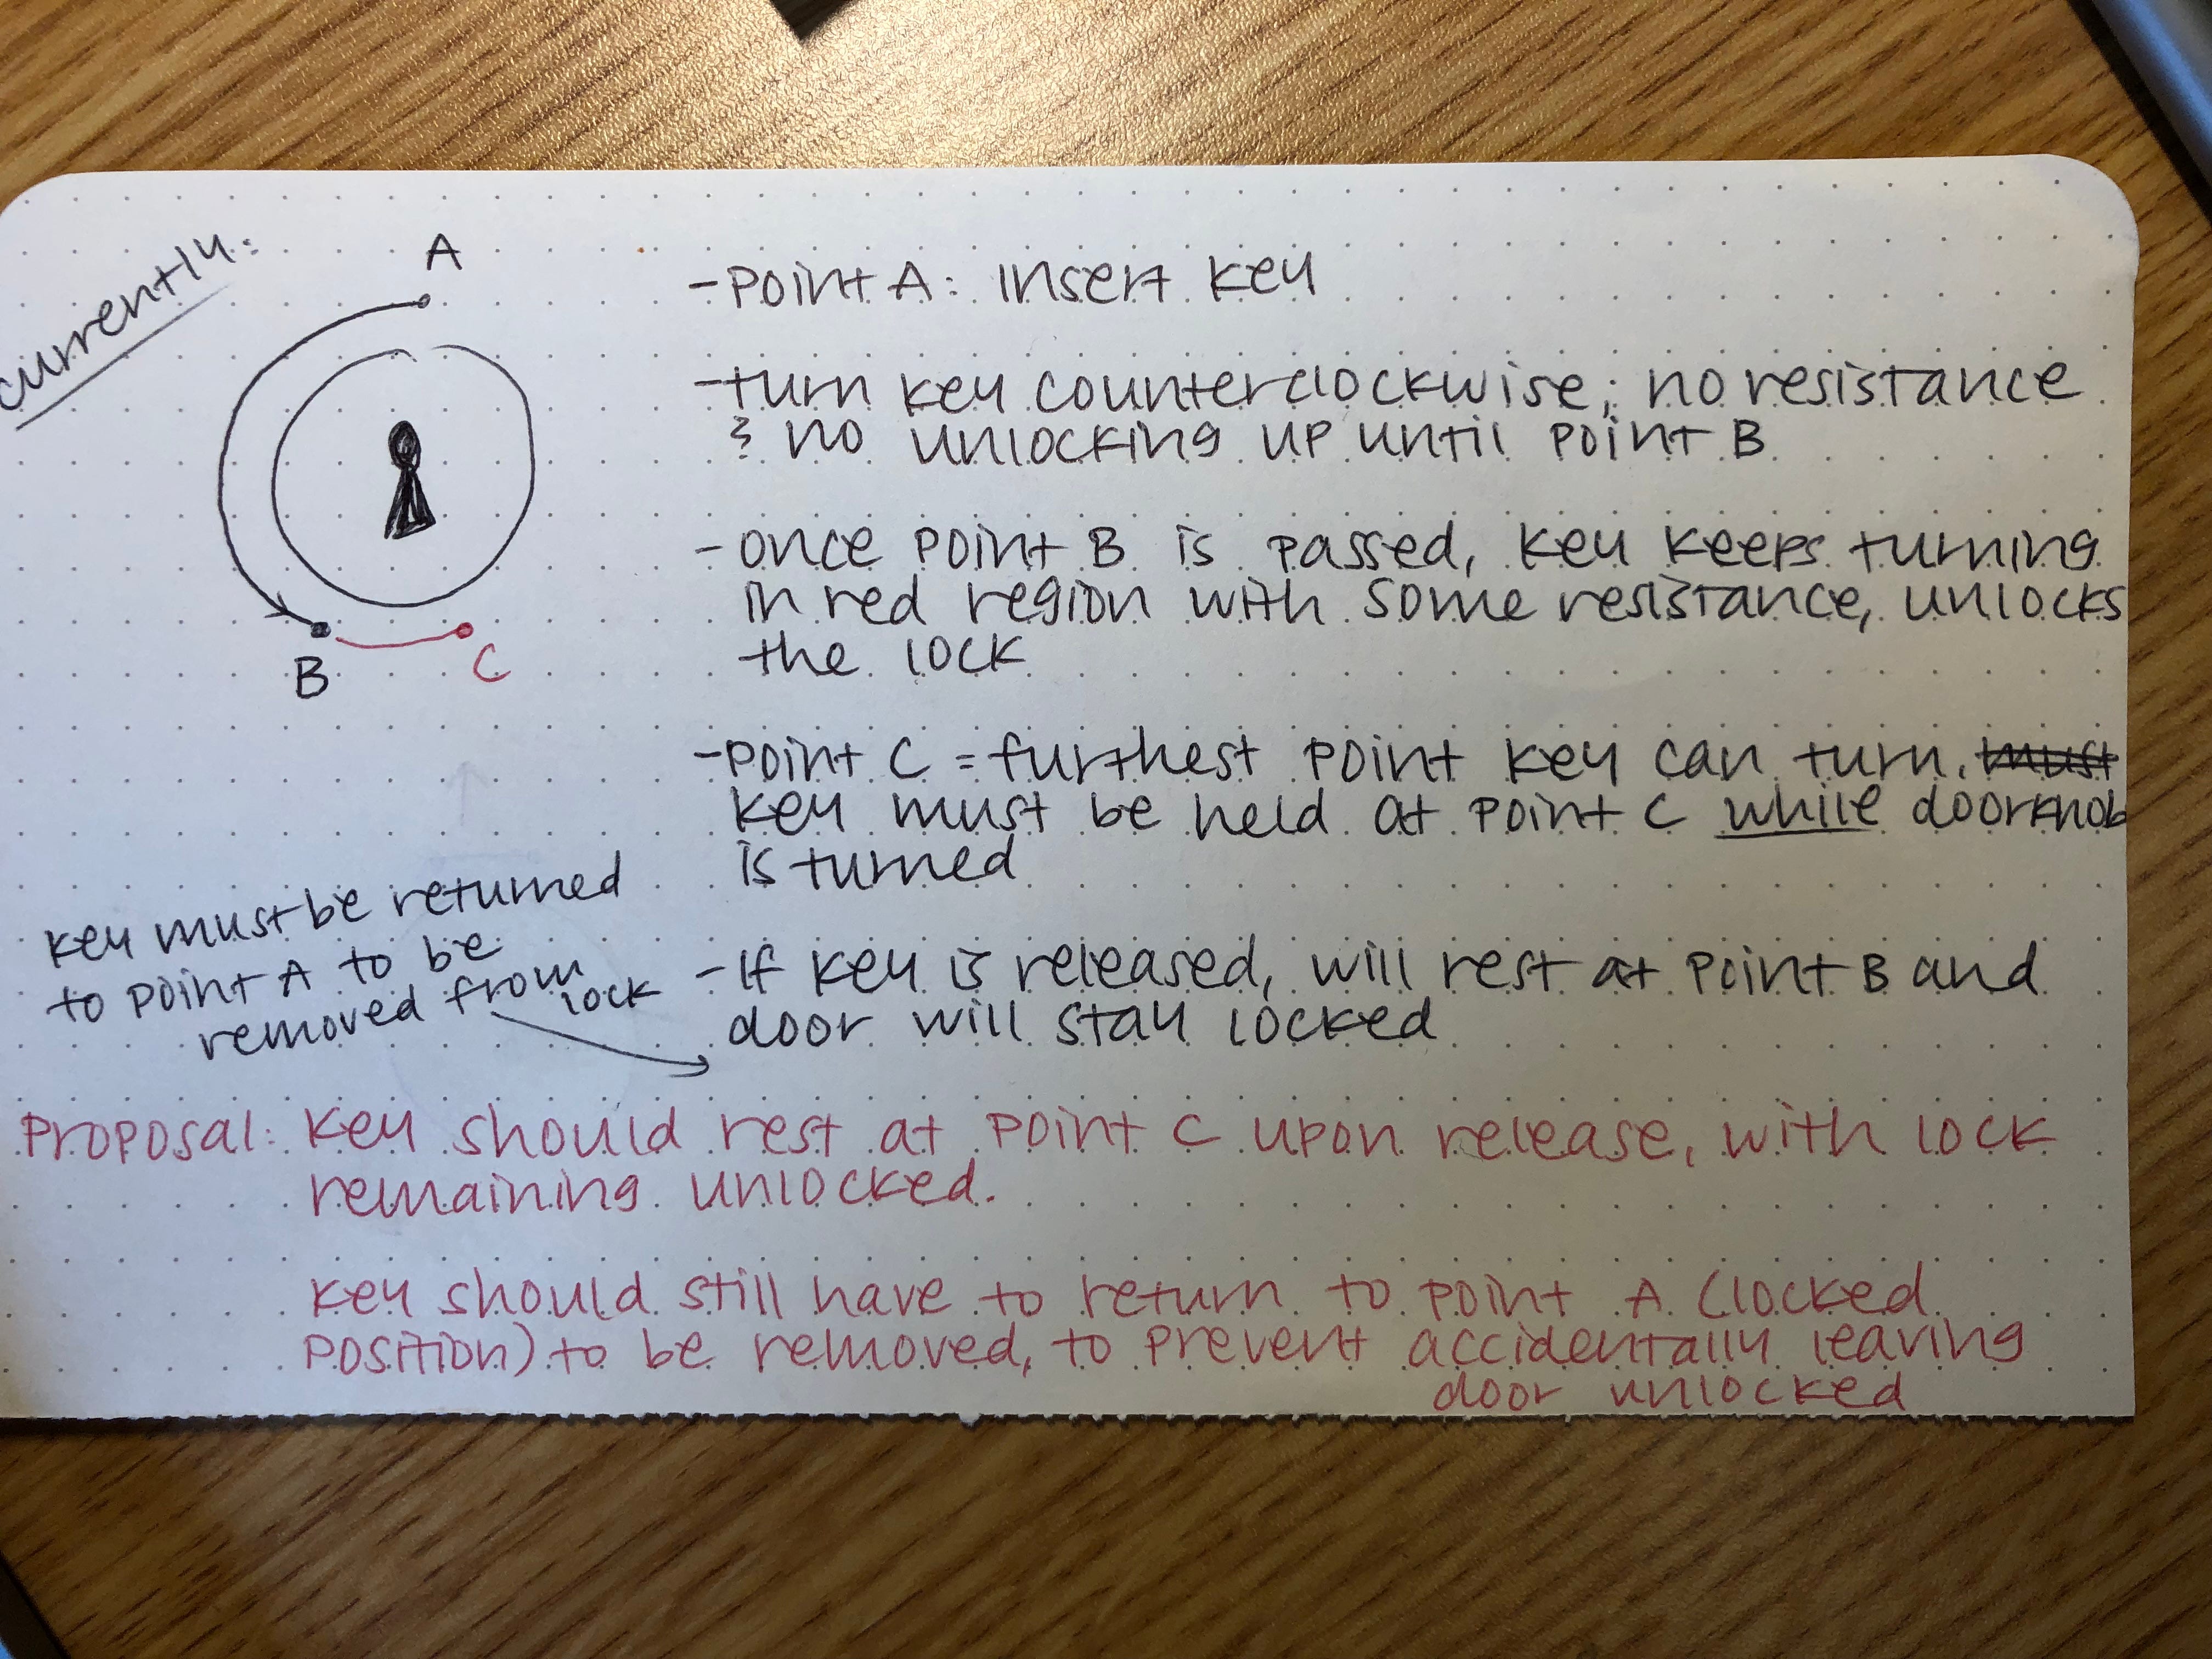 currently:
A
B
C
- Point A: insert key
- turn key counterclockwise; no resistance
& no unlocking up until point B
- once point B is passed, key keeps turning
in red region with some resistance, unlocks
the lock
- point C = furthest point key can turn. must
key must be held at point C while doorknob
is turned
key must be returned
to point A to be
removed from lock
- If key is released, will rest at point B and
door will stay locked
Proposal: Key should rest at point C upon release, with lock
remaining unlocked.
Key should still have to return to point A (locked
position) to be removed, to prevent accidentally leaving
door unlocked